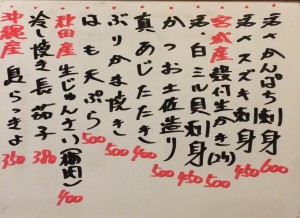 活かんぱち刺身 600
活スズキ刺身 450
宮城産 殻付生かき(2ヶ) 500
活・白ミル貝刺身 450
かつお土佐造り 500
真あじたたき 400
ぶりかま焼き 500
はも天ぷら 500
秋田産 生じゅんさい(鶏肉) 400
冷し焼き長茄子 380
沖縄産 島らっきょ 350